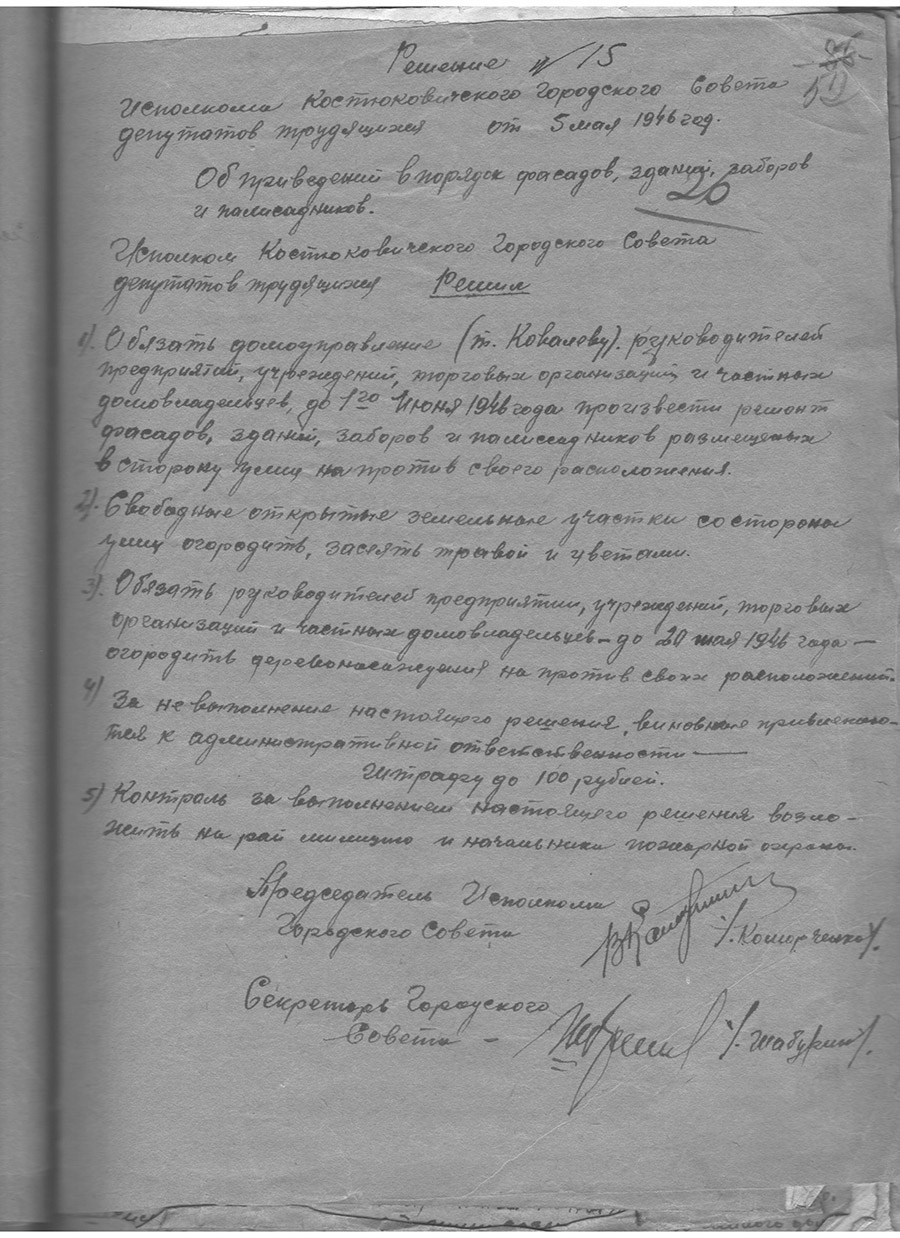 Решение № 15
86
50
Исполкома Костюковичского Городского Совета
депутатов трудящихся от 5 мая 1946 год.
Об приведений в порядк фасадов, зданий, заборов
20
и палисадников.
Исполком Костюковичского Городского Совета
депутатов трудящихся Решил
1). Обязать домоуправление (т. Ковалеву). руководителей
предприятий, учреждений, торговых организаций и частных
домовладельцев, до 1го Июня 1946 года произвести ремонт
фасадов, зданий, заборов и палиссадников размещеных
в сторону улиц на против своего расположения.
2). Свободные открытые земельные участки со стороны
улиц огородить, засеять травой и цветами.
3). Обязать руководителей предприятии, учреждений, торговых
организаций и частных домовладельцев – до 20 мая 1946 года —
огородить деревонасаждения на против своих расположений.
4) За не выполнение настоящего решения, виновные привлекаю-
тся к административной ответственности —
Штрафу до 100 рублей.
5) Контроль за выполнением настоящего решения возло-
жить на рай милицию и начальника пожарной охраны.
Председатель Исполкома
Городского Совета /.Комарченко/.
Секретарь Городского
Совета – /.Шабуркин/.